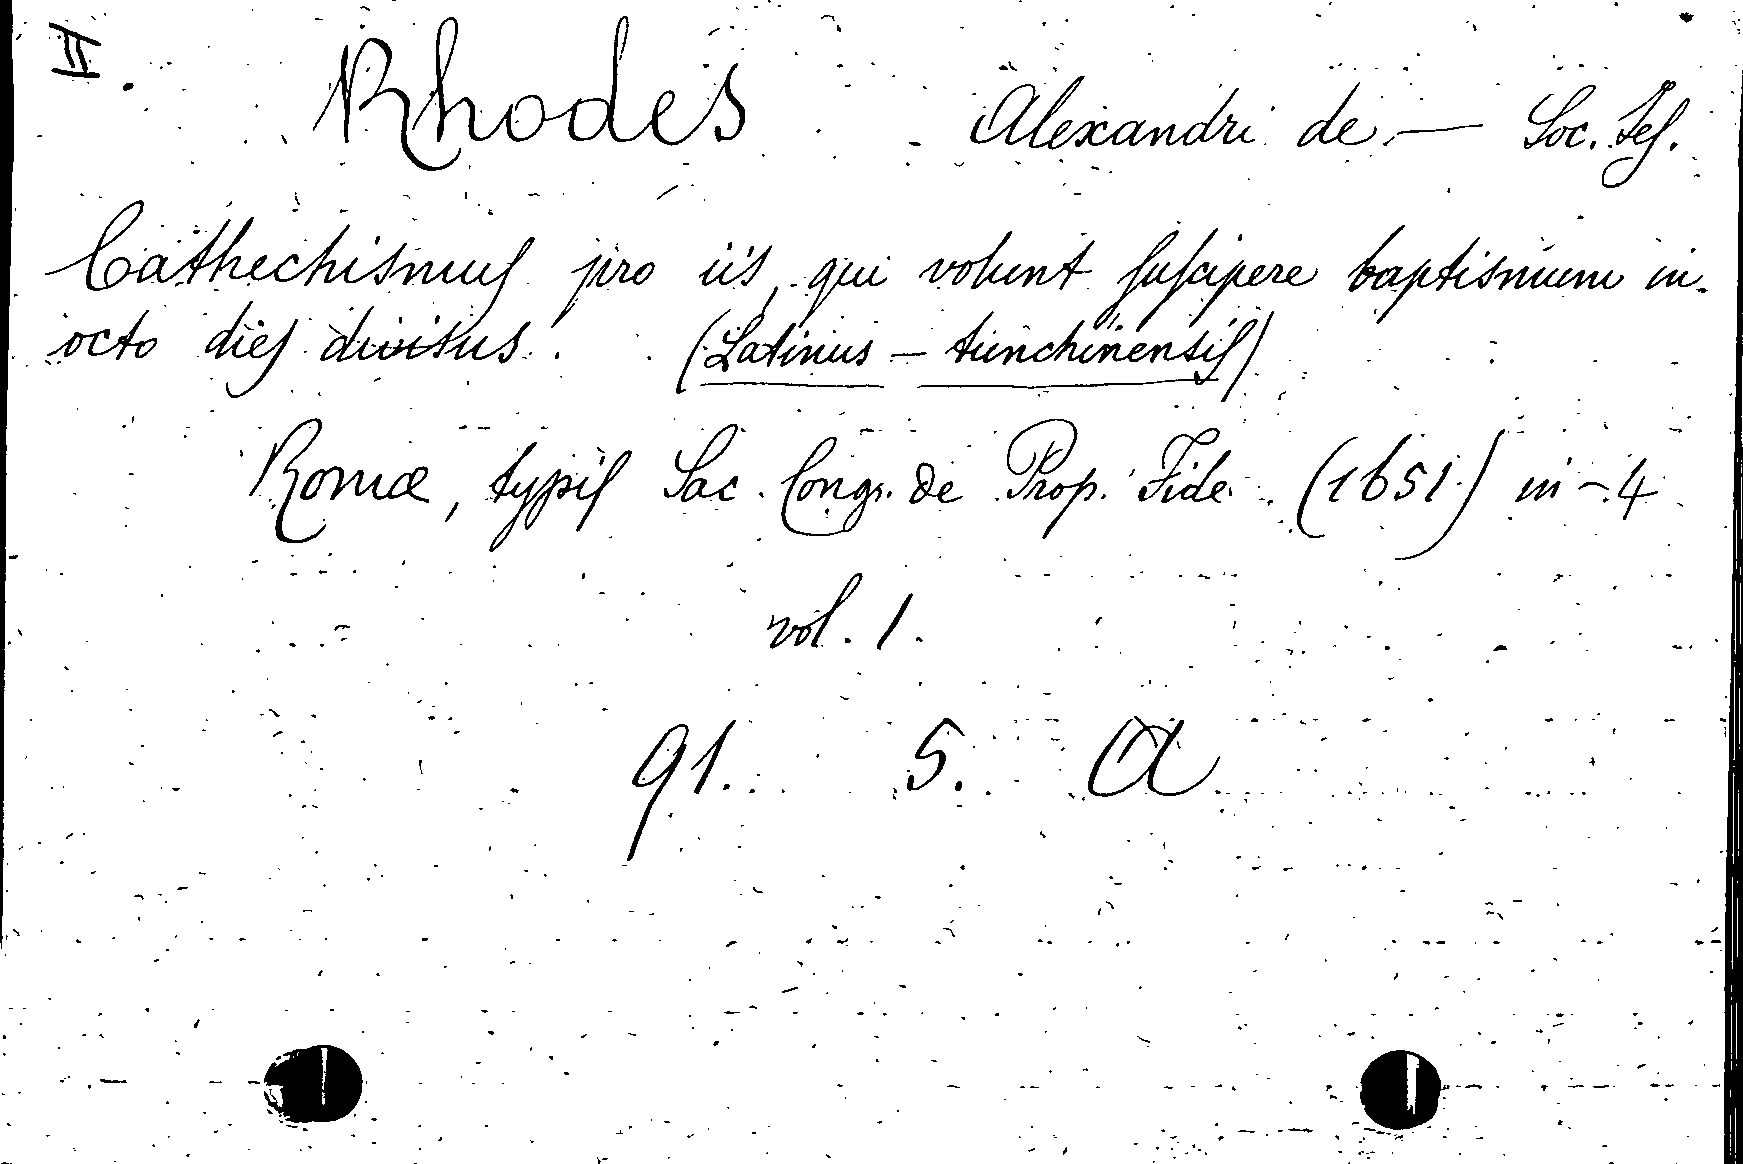 II.
Rhodes Alexandri de — Soc. Jes.
Cathechismus pro iis, qui volunt suscipere baptismum in
octo dies divisus. (Latinus - tunchinensis)
Romæ, typis Sac. Cong. de Prop. Fide. (1651.) in-4
vol. 1.
91. 5. A